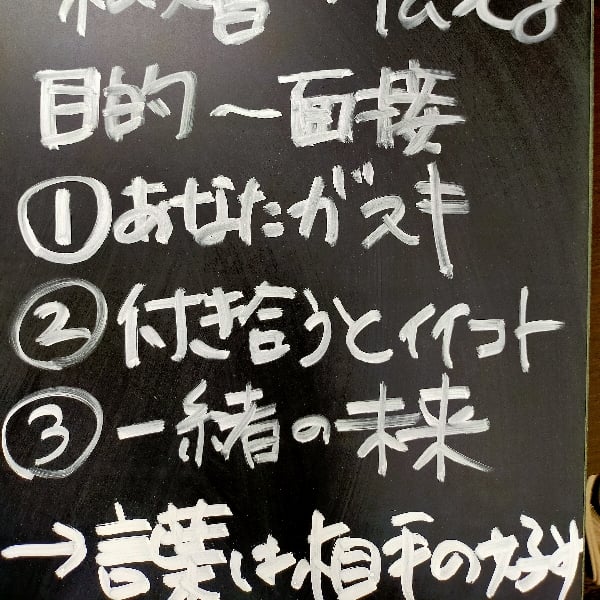 目的〜面接
①あなたガスキ
②付き合うとイイコト
③一緒の未来
→言葉は相手の